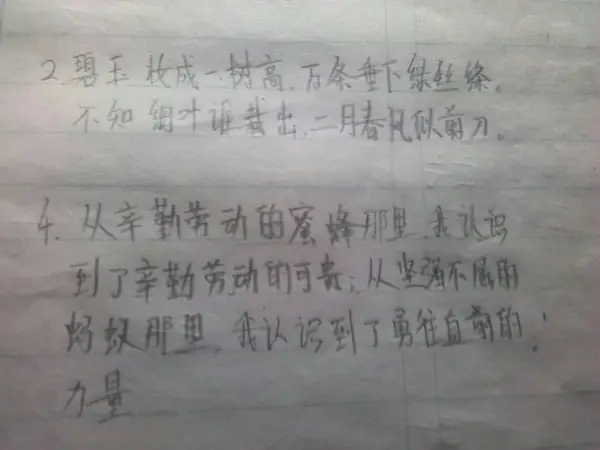 2.碧玉妆成一树高,万条垂下绿丝绦。
不知细叶谁裁出,二月春风似剪刀。
4.从辛勤劳动的蜜蜂那里,我认识
到了辛勤劳动的可贵;从坚强不屈的
蚂蚁那里,我认识到了勇往直前的
力量